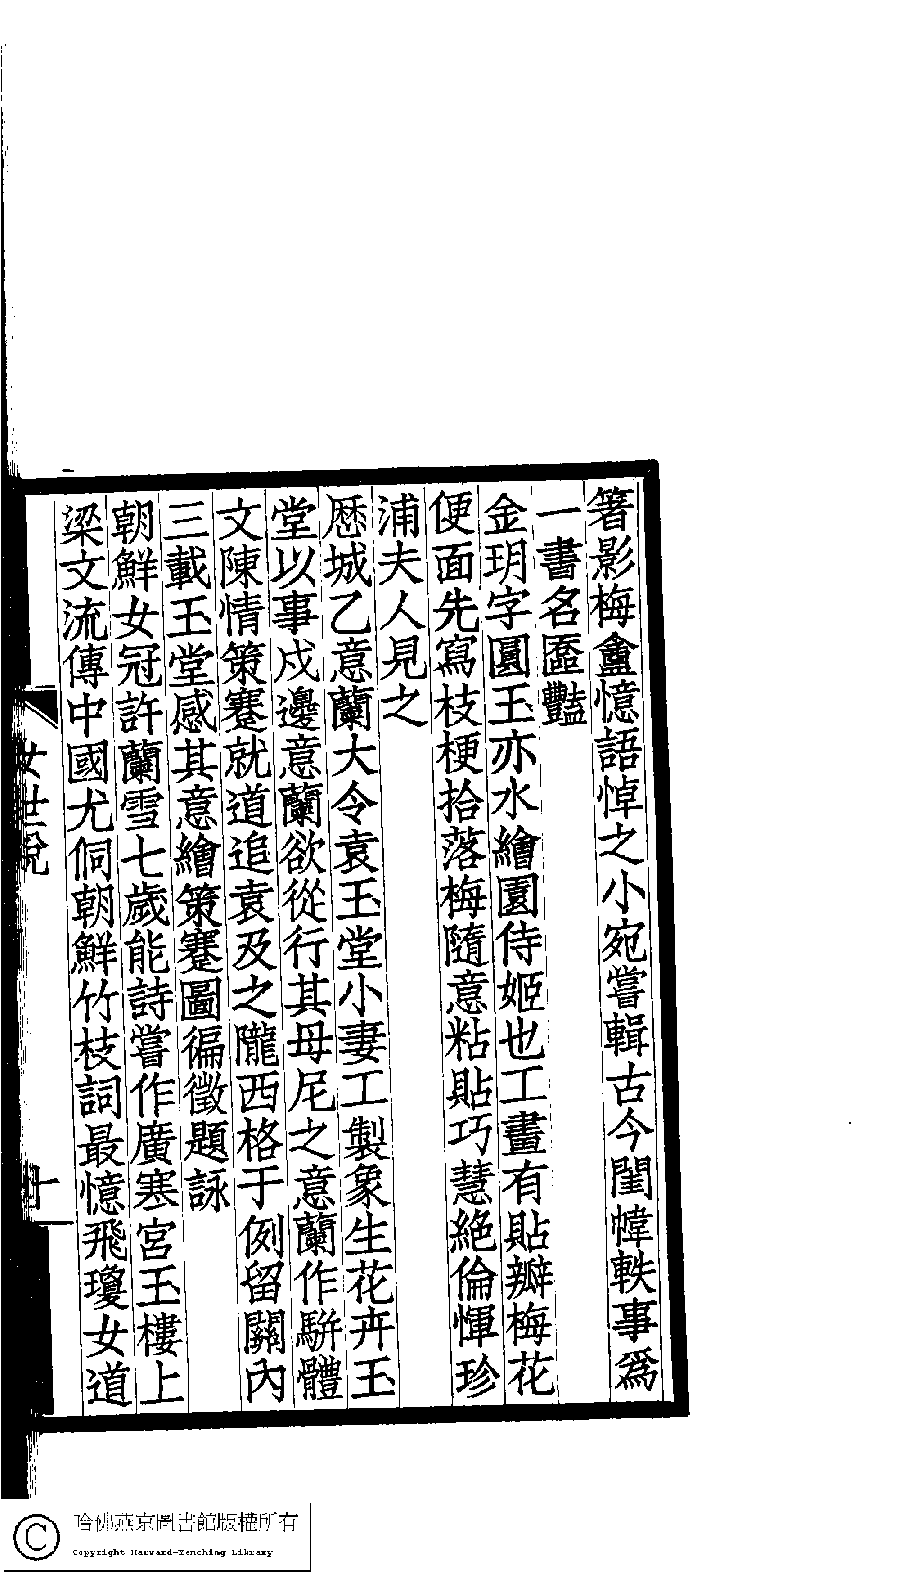 箸影梅盦憶語悼之小宛嘗輯古今閨幃軼事爲
一書名匳豔
金玥字圓玉亦水繪園侍姬也工畫有貼瓣梅花
便面先寫枝梗拾落梅隨意粘貼巧慧絕倫惲珍
浦夫人見之
歷城乙意蘭大令袁玉堂小妻工製象生花卉玉
堂以事戍邊意蘭欲從行其母尼之意蘭作駢體
文陳情策蹇就道追袁及之隴西格于例留關內
三載玉堂感其意繪策蹇圖徧徵題詠
朝鮮女冠許蘭雪七歲能詩嘗作廣寒宮玉樓上
梁文流傳中國尤侗朝鮮竹枝詞最憶飛瓊女道
女世說
哈佛燕京圖書館版權所有
Copyright Harvard-Yenching Library